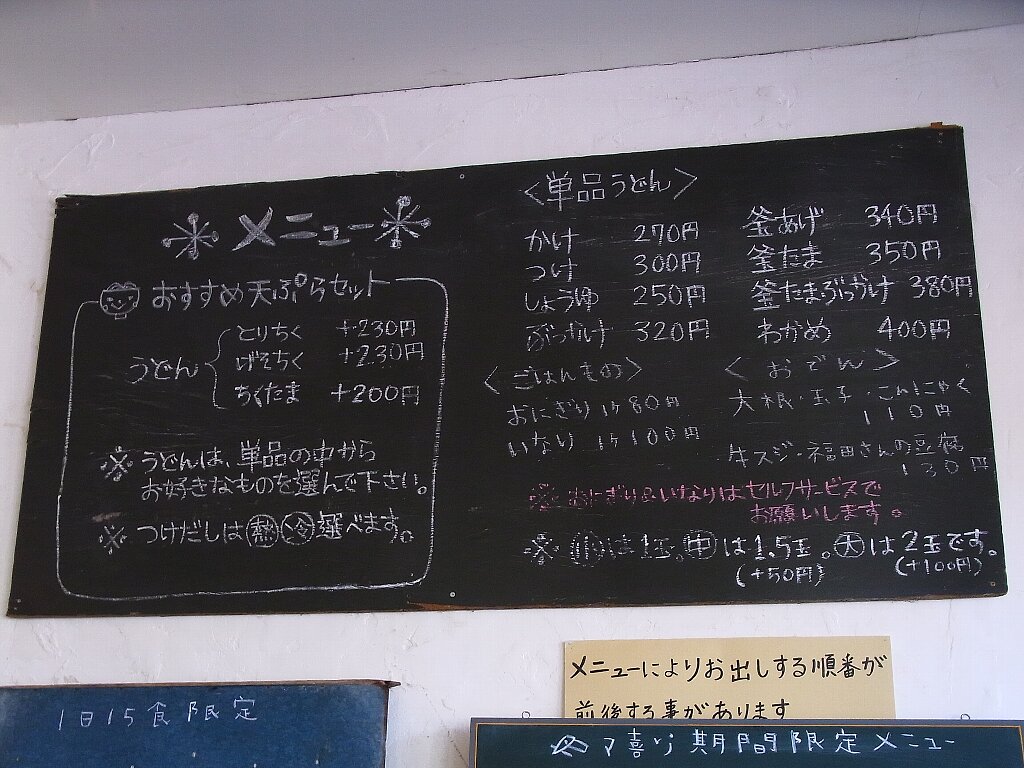 メニュー
おすすめ天ぷらセット
うどん
とりちく +230円
げそちく +230円
ちくたま +200円
※うどんは、単品の中から
お好きなものを選んで下さい。
※つけだしは熱冷選べます。
<単品うどん>
かけ 270円
つけ 300円
しょうゆ 250円
ぶっかけ 320円
釜あげ 340円
釜たま 350円
釜たまぶっかけ 380円
わかめ 400円
<ごはんもの>
おにぎり 1ケ80円
いなり 1ケ100円
<おでん>
大根・玉子・こんにゃく
110円
牛スジ・福田さんの豆腐
130円
※おにぎり&いなりはセルフサービスで
お願いします。
※小は1玉。中は1.5玉。大は2玉です。
(+50円) (+100円)
メニューによりお出しする順番が
前後する事があります
1日15食限定
期間限定メニュー